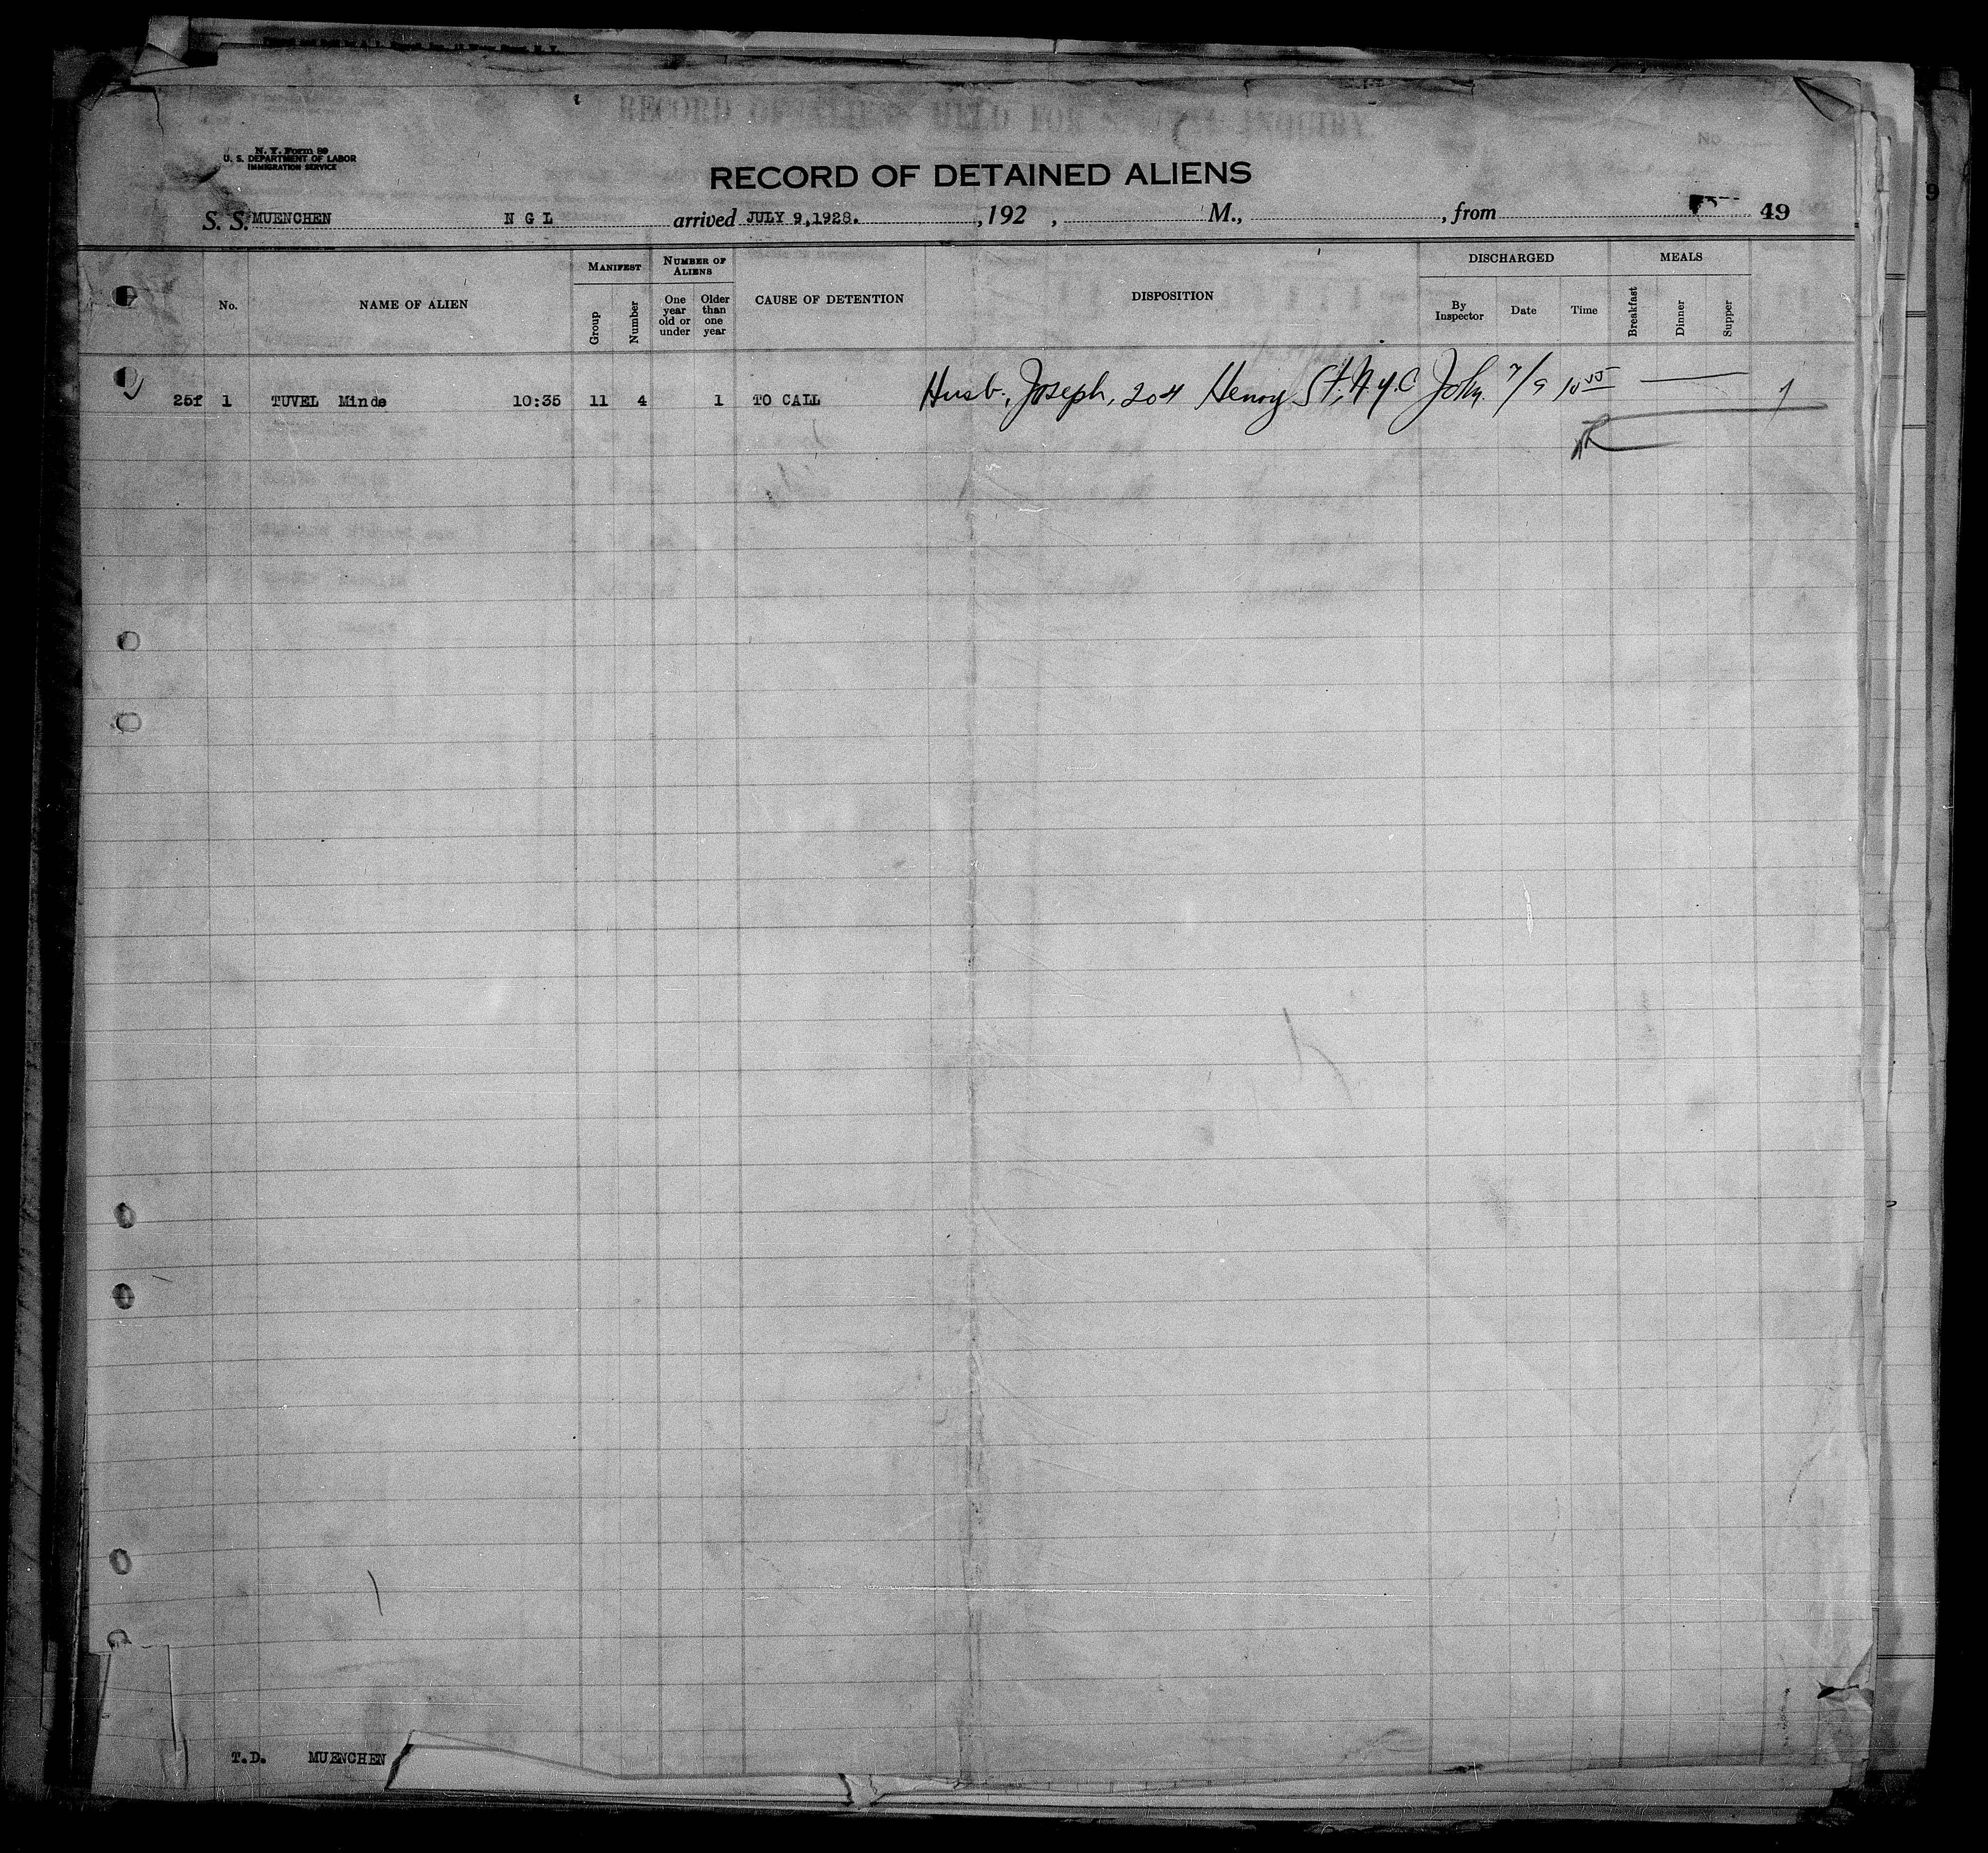 RECORD OF ALIENS HELD FOR SPECIAL INQUIRY
N. Y. Form 89
U. S. DEPARTMENT OF LABOR
IMMIGRATION SERVICE
No
RECORD OF DETAINED ALIENS
S. S. MUENCHEN N G L arrived JULY 9,1928. , 192 , M., , from 49
No. NAME OF ALIEN MANIFEST Group Number NUMBER OF ALIENS One year old or under Older than one year CAUSE OF DETENTION DISPOSITION DISCHARGED By Inspector Date Time MEALS Breakfast Dinner Supper
25f 1 TUVEL Minde 10:35 11 4 1 TO CALL Husb., Joseph, 204 Henry St. N.Y.C. John. 7/9 10 1
T.D. MUENCHEN